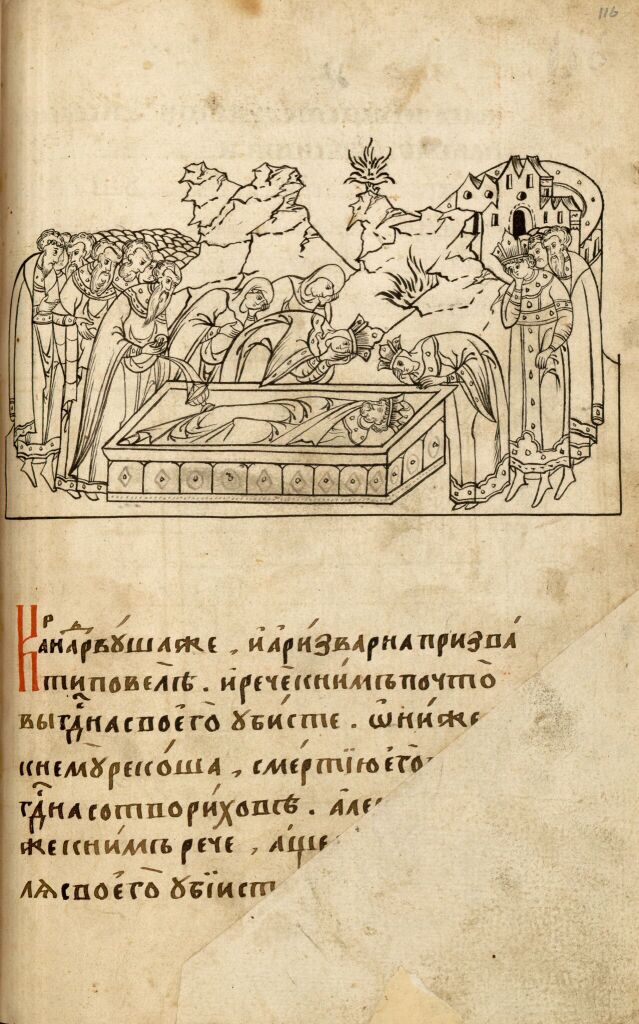 116
Канда́рвꙋша же , и҆ а҆ри́зварна призва́
ти повелѣ . и҆ рече къ нимъ почто̀
вы гдⷭ҇на своего̀ ꙋбисте . ѡ҆ни же
къ немꙋ̀ рекоша , сме́ртїю е҆го̀
гдⷭ҇на сотвори́ховѣ . але
же къ нимъ рече , а҆ще
лѧ своего̀ ꙋбїист